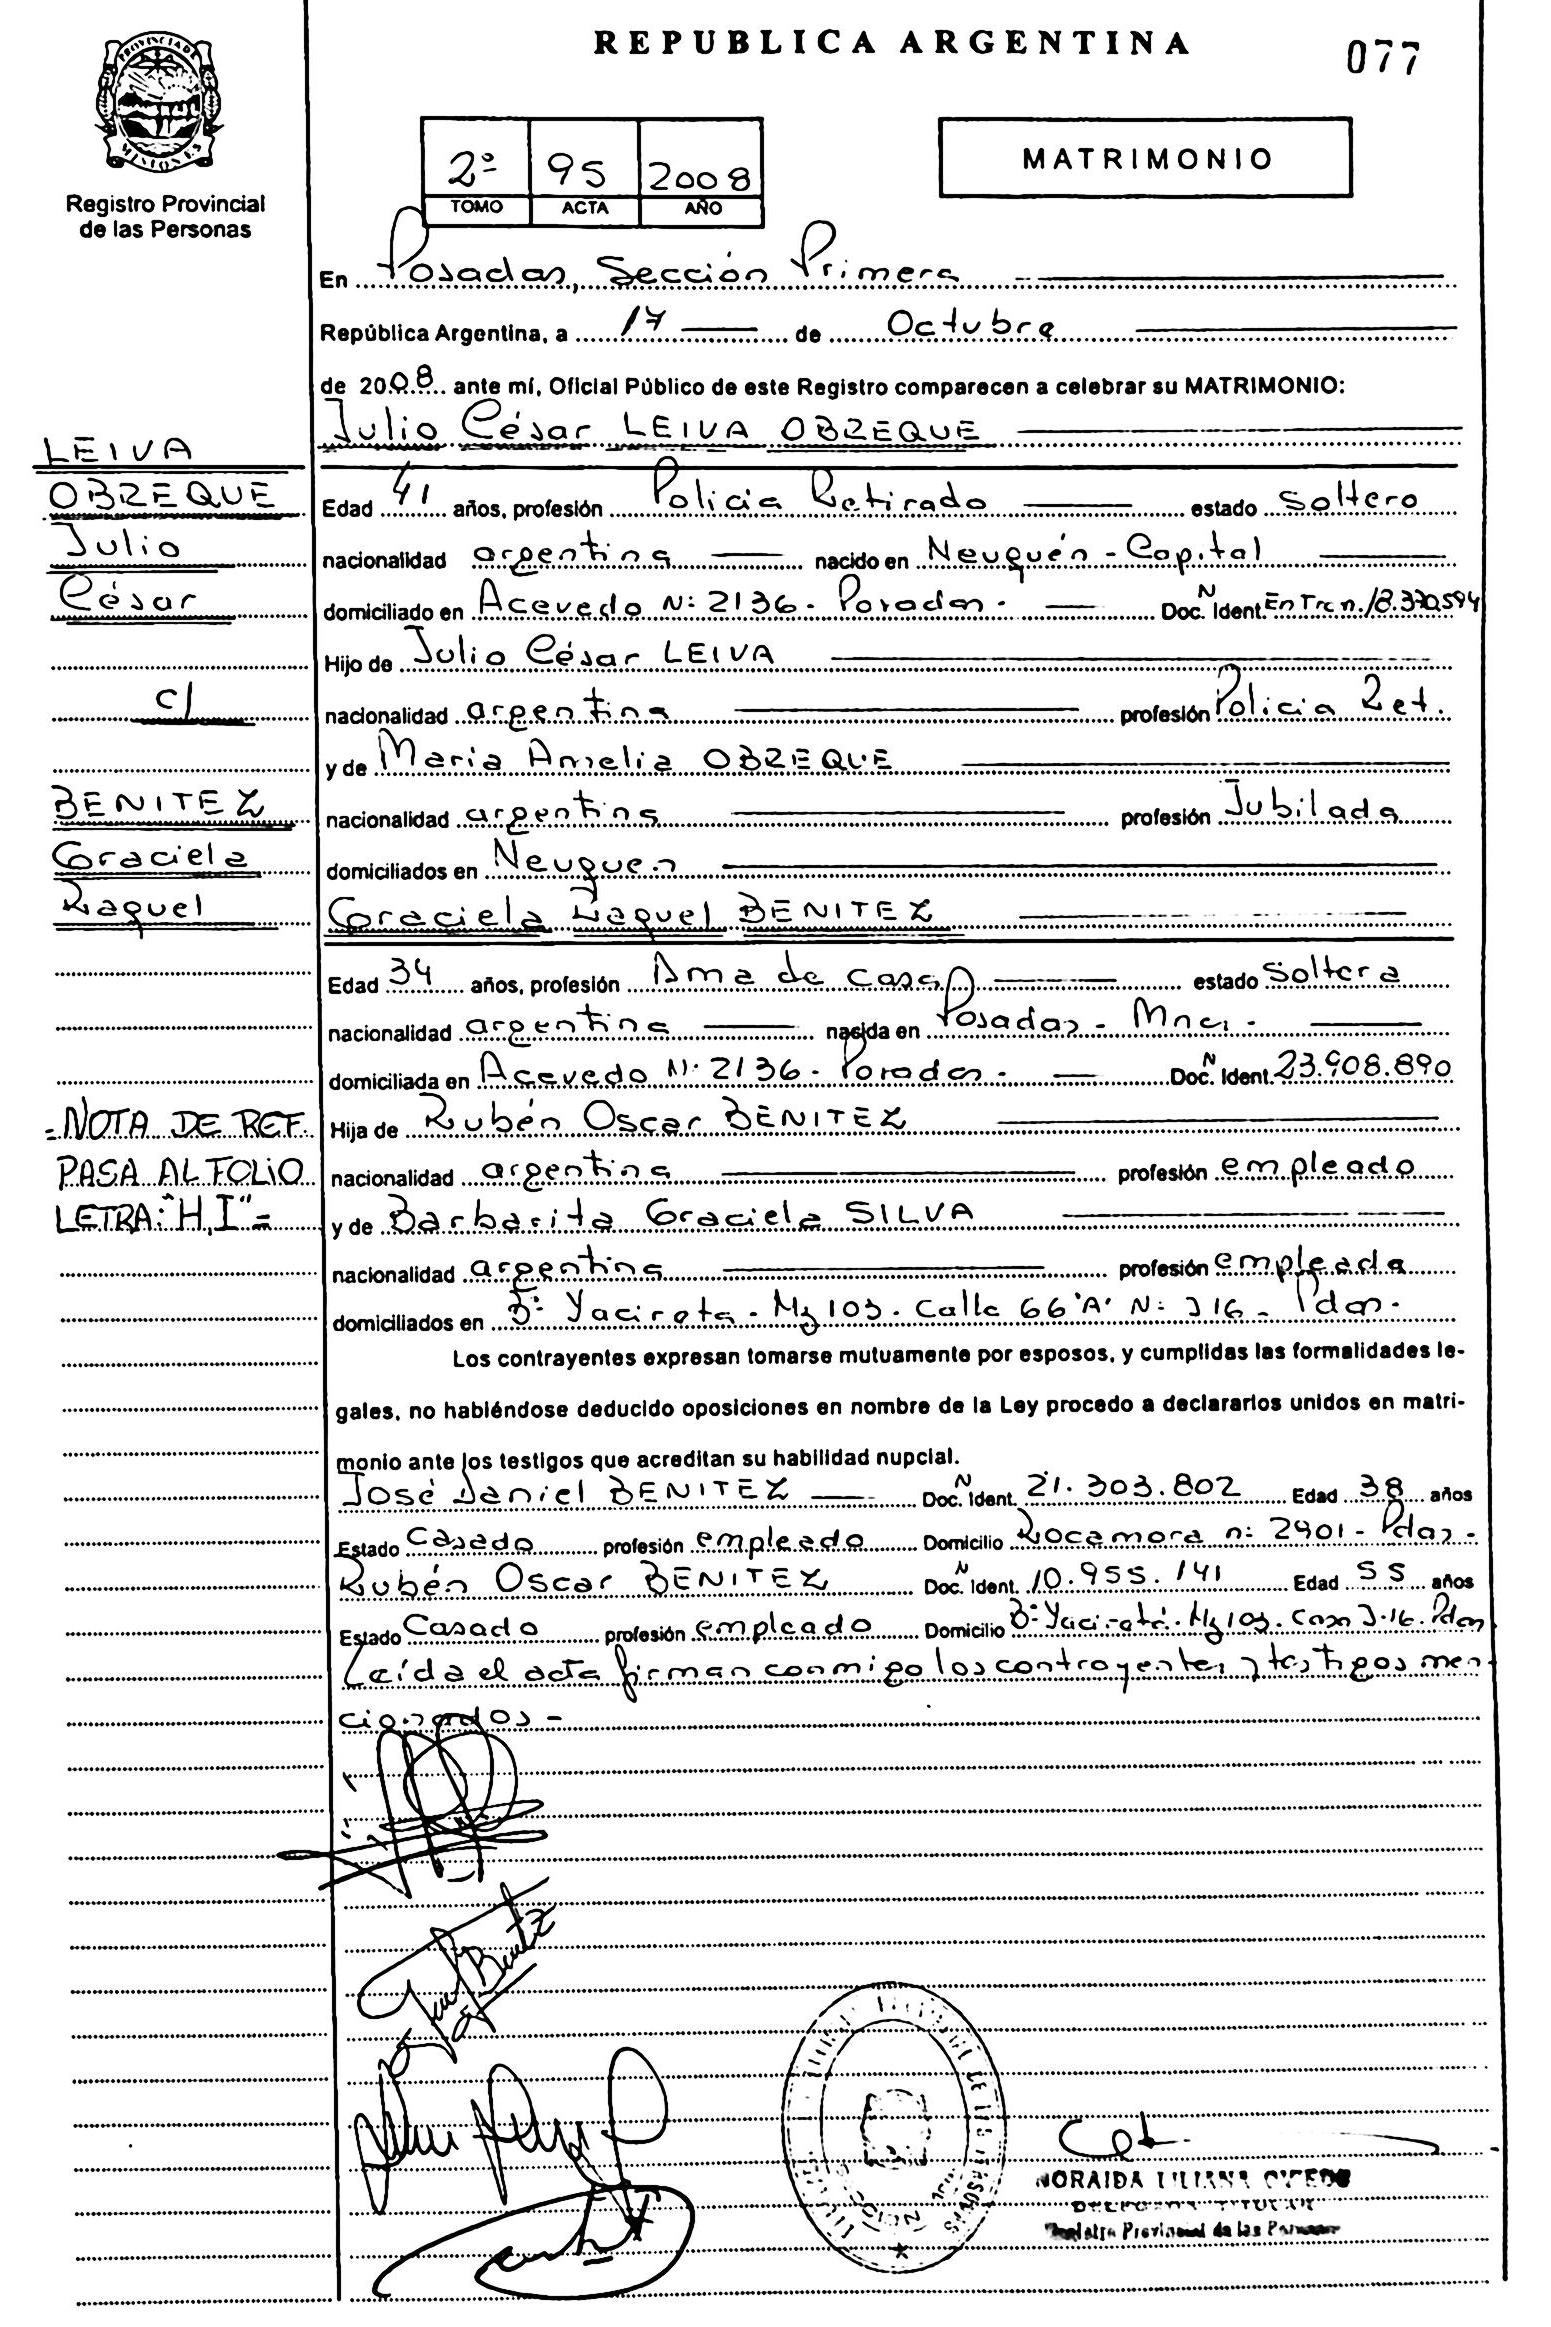 REPUBLICA ARGENTINA
077
PROVINCIA DE MISIONES
Registro Provincial
de las Personas
2º 95 2008
TOMO ACTA AÑO
MATRIMONIO
En Posadas, Sección Primera
República Argentina, a 17 de Octubre
de 2008 ante mí, Oficial Público de este Registro comparecen a celebrar su MATRIMONIO:
Julio César LEIVA OBREQUE
LEIVA
OBREQUE
Julio
César
c/
BENITEZ
Graciela
Raquel
Edad 41 años, profesión Policia Retirado estado soltero
nacionalidad argentina nacido en Neuquén - Capital
domiciliado en Acevedo Nº 2136 - Posadas - Doc. N Ident. En Trcn. 18.370.594
Hijo de Julio César LEIVA
nacionalidad argentina profesión Policia Ret.
y de Maria Amelia OBREQUE
nacionalidad argentina profesión Jubilada
domiciliados en Neuquen
Graciela Raquel BENITEZ
Edad 34 años, profesión Ama de casa estado soltera
nacionalidad argentina nacida en Posadas - Mnes -
domiciliada en Acevedo Nº 2136 - Posadas - Doc. N Ident. 23.908.890
Hija de Rubén Oscar BENITEZ
nacionalidad argentina profesión empleado
y de Barbarita Graciela SILVA
nacionalidad argentina profesión empleada
domiciliados en Bº Yacireta - Mz 103 - Calle 66 "A" Nº J16 - Pdas -
= NOTA DE REF.
PASA AL FOLIO
LETRA: "H,I" =
Los contrayentes expresan tomarse mutuamente por esposos, y cumplidas las formalidades le-
gales, no habiéndose deducido oposiciones en nombre de la Ley procedo a declararlos unidos en matri-
monio ante los testigos que acreditan su habilidad nupcial.
José Daniel BENITEZ Doc. N Ident. 21.303.802 Edad 38 años
Estado Casado profesión empleado Domicilio Rocamora nº 2901 - Pdas -
Rubén Oscar BENITEZ Doc. N Ident. 10.955.141 Edad 55 años
Estado Casado profesión empleado Domicilio Bº Yacireta - Mz 103 - Casa J-16 - Pdas
Leída el acta firman conmigo los contrayentes y testigos men-
cionados -
NORAIDA LILIANA OVIEDO
DELEGADA TITULAR
Registro Provincial de las Personas